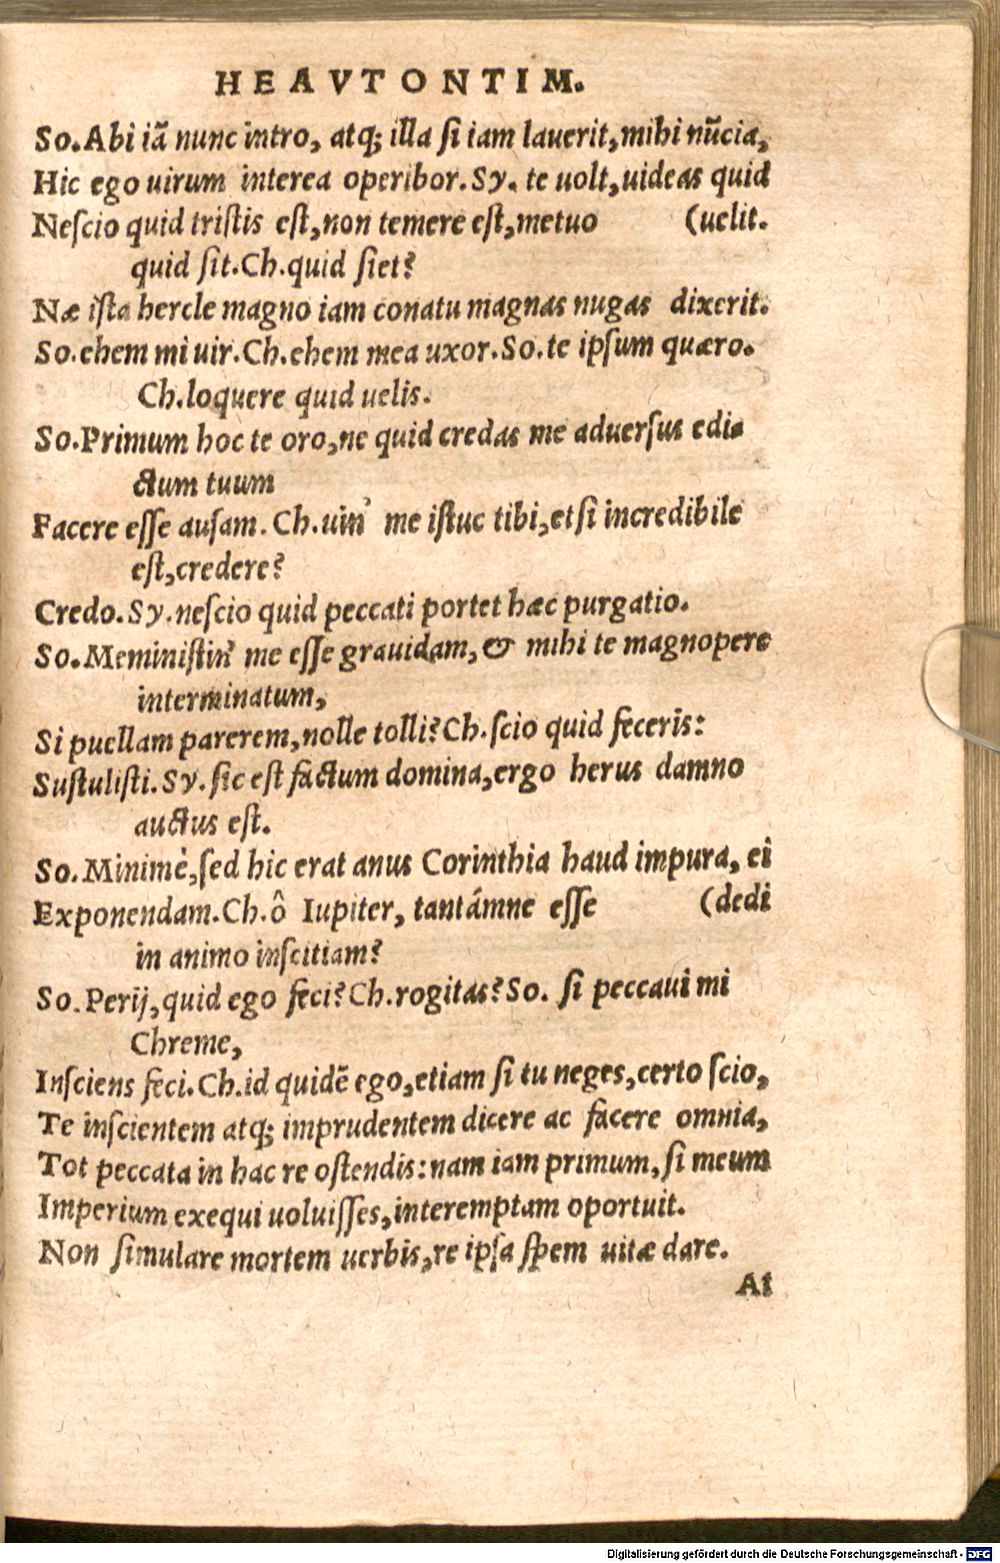 HEAVTONTIM.
So. Abi iã nunc intro, atq; illa si iam lauerit, mihi nũcia,
Hic ego uirum interea operibor. Sy. te uolt, uideas quid
Nescio quid tristis est, non temere est, metuo (uelit.
quid sit. Ch. quid siet?
Næ ista hercle magno iam conatu magnas nugas dixerit.
So. ehem mi uir. Ch. ehem mea uxor. So. te ipsum quæro.
Ch. loquere quid uelis.
So. Primum hoc te oro, ne quid credas me aduersus edi-
ctum tuum
Facere esse ausam. Ch. uin' me istuc tibi, etsi incredibile
est, credere?
Credo. Sy. nescio quid peccati portet hæc purgatio.
So. Meministin' me esse grauidam, & mihi te magnopere
interminatum,
Si puellam parerem, nolle tolli? Ch. scio quid feceris:
Sustulisti. Sy. sic est factum domina, ergo herus damno
auctus est.
So. Minimè, sed hic erat anus Corinthia haud impura, ei
Exponendam. Ch. ô Iupiter, tantámne esse (dedi
in animo inscitiam?
So. Perij, quid ego feci? Ch. rogitas? So. si peccaui mi
Chreme,
Insciens feci. Ch. id quidẽ ego, etiam si tu neges, certo scio,
Te inscientem atq; imprudentem dicere ac facere omnia,
Tot peccata in hac re ostendis: nam iam primum, si meum
Imperium exequi uoluisses, interemptam oportuit.
Non simulare mortem uerbis, re ipsa spem uitæ dare.
At
Digitalisierung gefördert durch die Deutsche Forschungsgemeinschaft - DFG